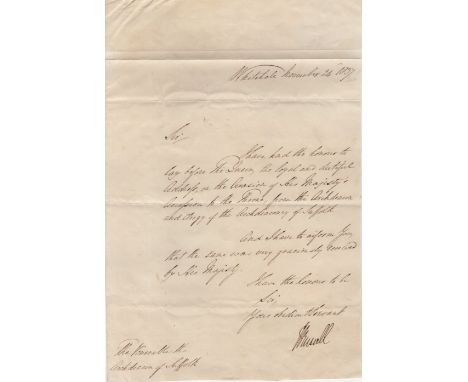 Whitehall November 24th 1837
Sir,
I have had the honor to
lay before The Queen, the loyal and dutiful
Address, on the occasion of Her Majesty's
Accession to the Throne, from the Archdeacon
and Clergy of the Archdeaconry of Suffolk
And I have to inform You,
that the same was very graciously received
by Her Majesty.
I have the honour to be
Sir,
Your obedient Servant
J Russell
The Venble the
Archdeacon of Suffolk